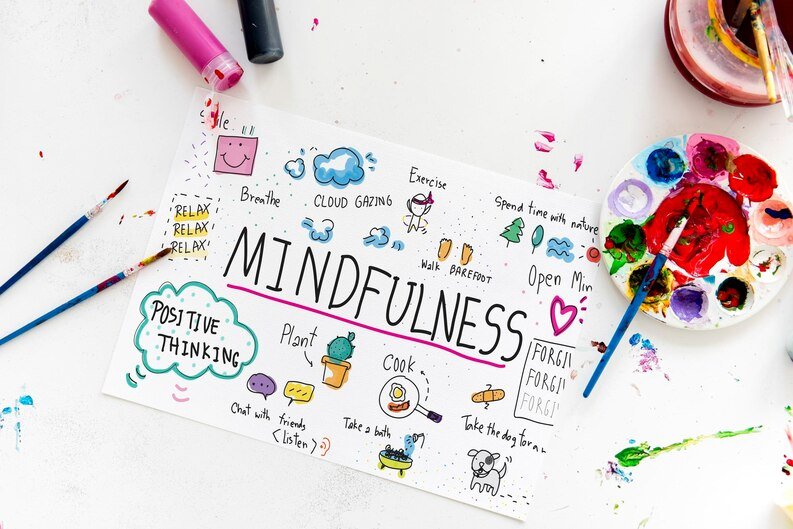 Breathe
CLOUD GAZING
Exercise
Spend time with nature
RELAX
RELAX
RELAX
MINDFULNESS
WALK BAREFOOT
Open Min
POSITIVE
THINKING
Plant
Cook
FORGI
FORGI
FORGI
Chat with friends
<listen>
Take a bath
Take the dog for a